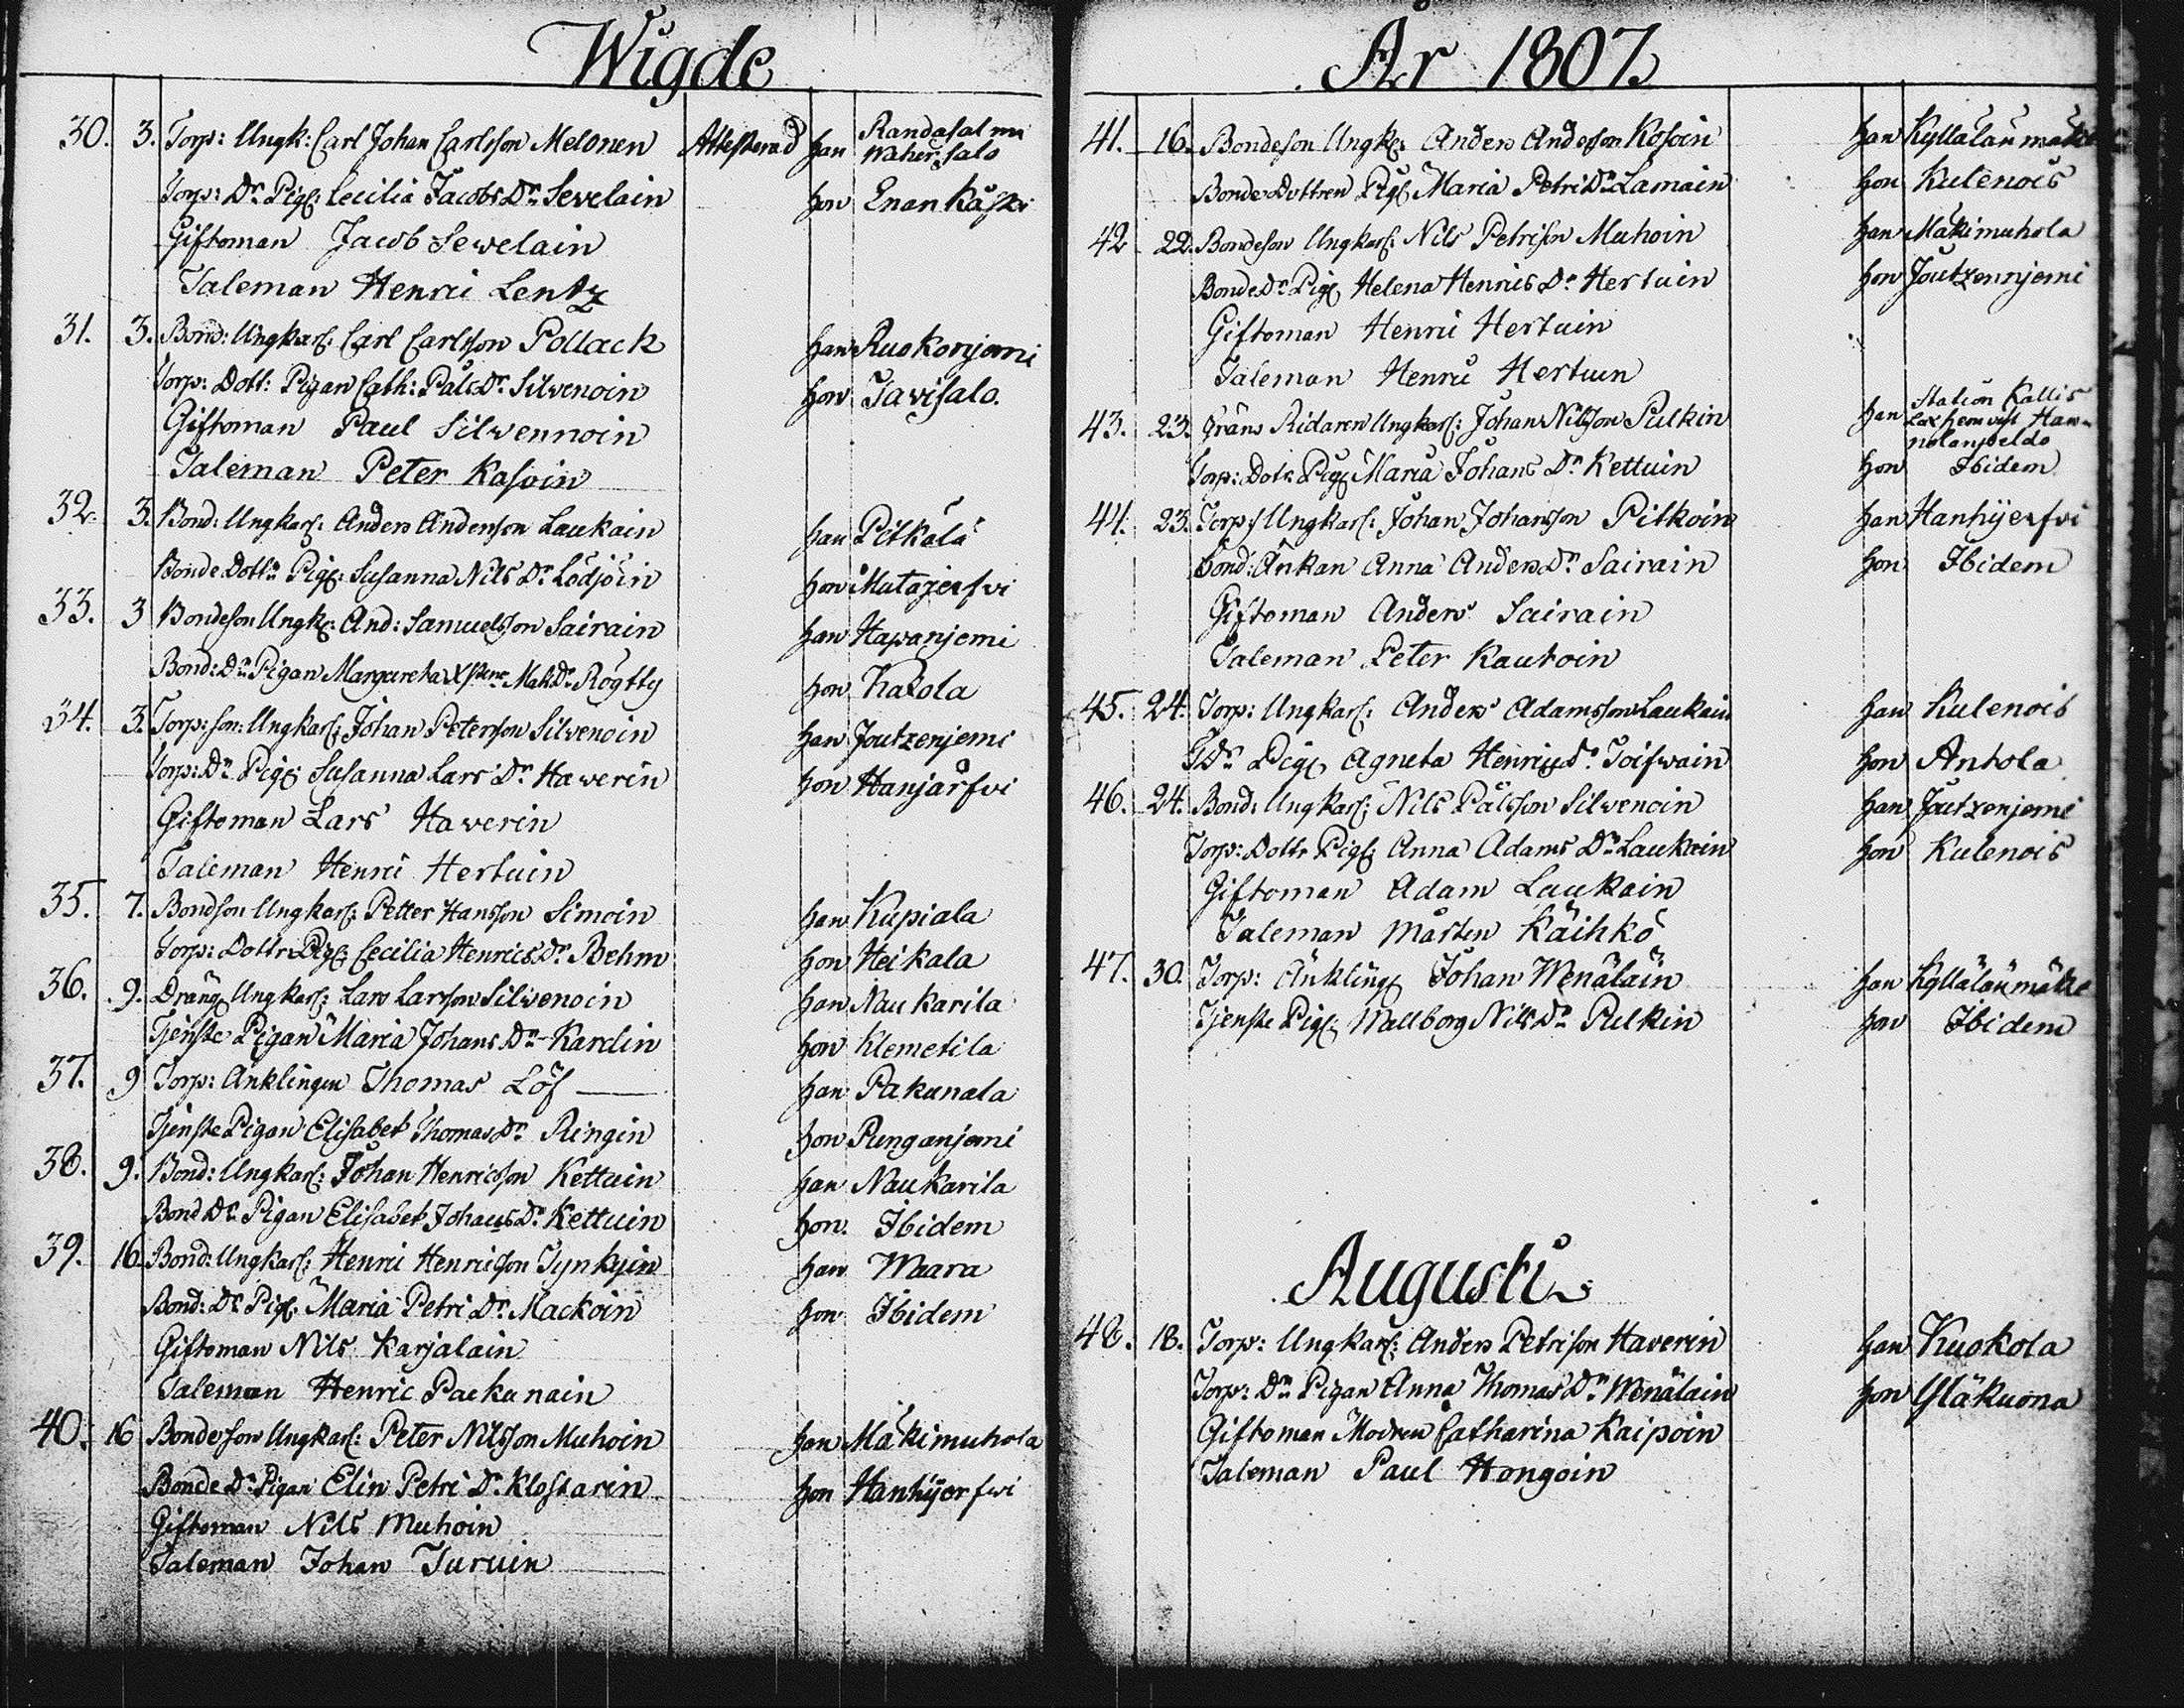 Wigde
30. 3. Torp: Ungk: Carl Johan Carlsson Melonen Attesterad han Randasalmi Wahersalo
Torp: Dr Pig: Cecilia Jacobs Dr Sevelain hon Enankåski
Giftoman Jacob Sewelain
Taleman Henric Lentz
31. 3. Bond: Ungkarl: Carl Carlsson Pollack han Ruokonjemi
Torp: Dott: Pigan Cath: Påls Dr Silvenoin hon Tavisalo.
Giftoman Paul Silvennoin
Taleman Peter Kasoin
32. 3. Bond: Ungkarl: Anders Andersson Laukain han Pitkälä
Bonde Dottn Pig: Susanna Nils Dr Lödjöin hon Matajerfvi
33. 3 Bondeson Ungk: And: Samuelsson Sairain han Hawanjemi
Bond: Dr Pigan Margareta Mats Dr Rögtty hon
34. 3. Torp: son: Ungkarl: Johan Petersson Silvenoin han Joutzenjemi
Torp: Dr Pig: Susanna Lars Dr Haverin hon Hanjärfvi
Giftoman Lars Haverin
Taleman Henric Hertuin
35. 7. Bondson Ungkarl: Petter Hansson Simoin han Kupiala
Torp: Dottr Pig: Cecilia Henrics Dr Behm hon Heikala
36. 9. Dräng Ungkarl: Lars Larsson Silvenoin han Naukarila
Tjenste Pigan Maria Johans Dr Kardin hon Klemetila
37. 9 Torp: Änklingen Thomas Löf han Pakunala
Tjenste Pigan Elisabet Thomas Dr Ringin hon Punganjemi
38. 9. Bond: Ungkarl: Johan Henricsson Kettuin han Naukarila
Bond Dr Pigan Elisabet Johans Dr Kettuin hon. Ibidem
39. 16 Bond: Ungkarl: Henric Henricsson Tynkyin han Waara
Bond: Dr Pig: Maria Petri Dr Mackoin hon Ibidem
Giftoman Nils Karjalain
Taleman Henric Packunain
40. 16 Bondeson Ungkarl: Peter Nilsson Muhoin han Mäkimuhola
Bonde Dr Pigan Elin Petri Dr Klostarin hon Hanhijerfvi
Giftoman Nils Muhoin
Taleman Johan Turuin
År 1807.
41. 16. Bondeson Ungk: Anders Andersson Kosoin han Kyllälänmäke
Bonde Dottren Pig: Maria Petri Dr Lamain hon Kulenois
42 22. Bondeson Ungkarl: Nils Petrison Muhoin han Mäkimuhola
Bonde Dr Pig: Helena Henrics Dr Hertuin hon Joutzennjemi
Giftoman Henric Hertuin
Taleman Henric Hertuin
43. 23. Gräns Ridaren Ungkarl: Johan Nilsson Pulkin han Station Kallis
Torp: Dotr Pig: Maria Johans Dr Kettuin hon Ibidem
44. 23. Torp: Ungkarl: Johan Johansson Pitkoin han Hanhijerfvi
Bond: Änkan Anna Anders Dr Sairain hon Ibidem
Giftoman Anders Sairain
Taleman Peter Kautoin
45. 24. Torp: Ungkarl: Anders Adamsson Laukain han Kulenois
T Dr Pig: Agneta Henrics Dr Toifwain hon Antola
46. 24. Bond: Ungkarl: Nils Pålsson Silvenoin han Joutzenjemi
Torp: Dottr Pig: Anna Adams Dr Laukain hon Kulenois
Giftoman Adam Laukain
Taleman Mårten Käihkö
47. 30. Torp: Änkling Johan Wenäläin han Kyllälänmäke
Tjenste Pig: Wallborg Nils Dr Pulkin hon Ibidem
Augusti
48. 18. Torp: Ungkarl: Anders Petrison Haverin han Kuokola
Torp: Dr Pigan Anna Thomas Dr Wenäläin hon Yläkuona
Giftoman Modren Catharina Kaipoin
Taleman Paul Hongoin